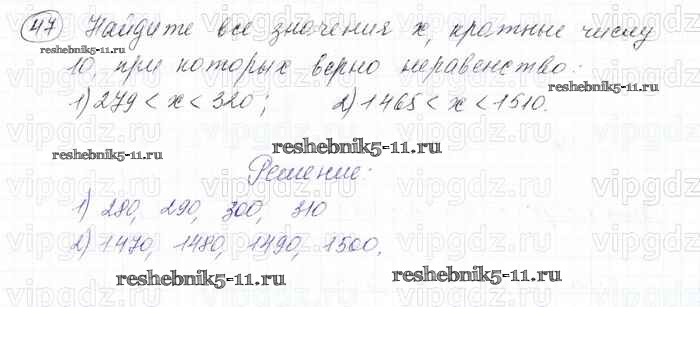 47 Найдите все значения x, кратные числу
reshebnik5-11.ru
10, при которых верно неравенство:
reshebnik5-11.ru
1) 279 < x < 320; 2) 1465 < x < 1510.
reshebnik5-11.ru
reshebnik5-11.ru
Решение:
1) 280, 290, 300, 310
2) 1470, 1480, 1490, 1500.
reshebnik5-11.ru reshebnik5-11.ru